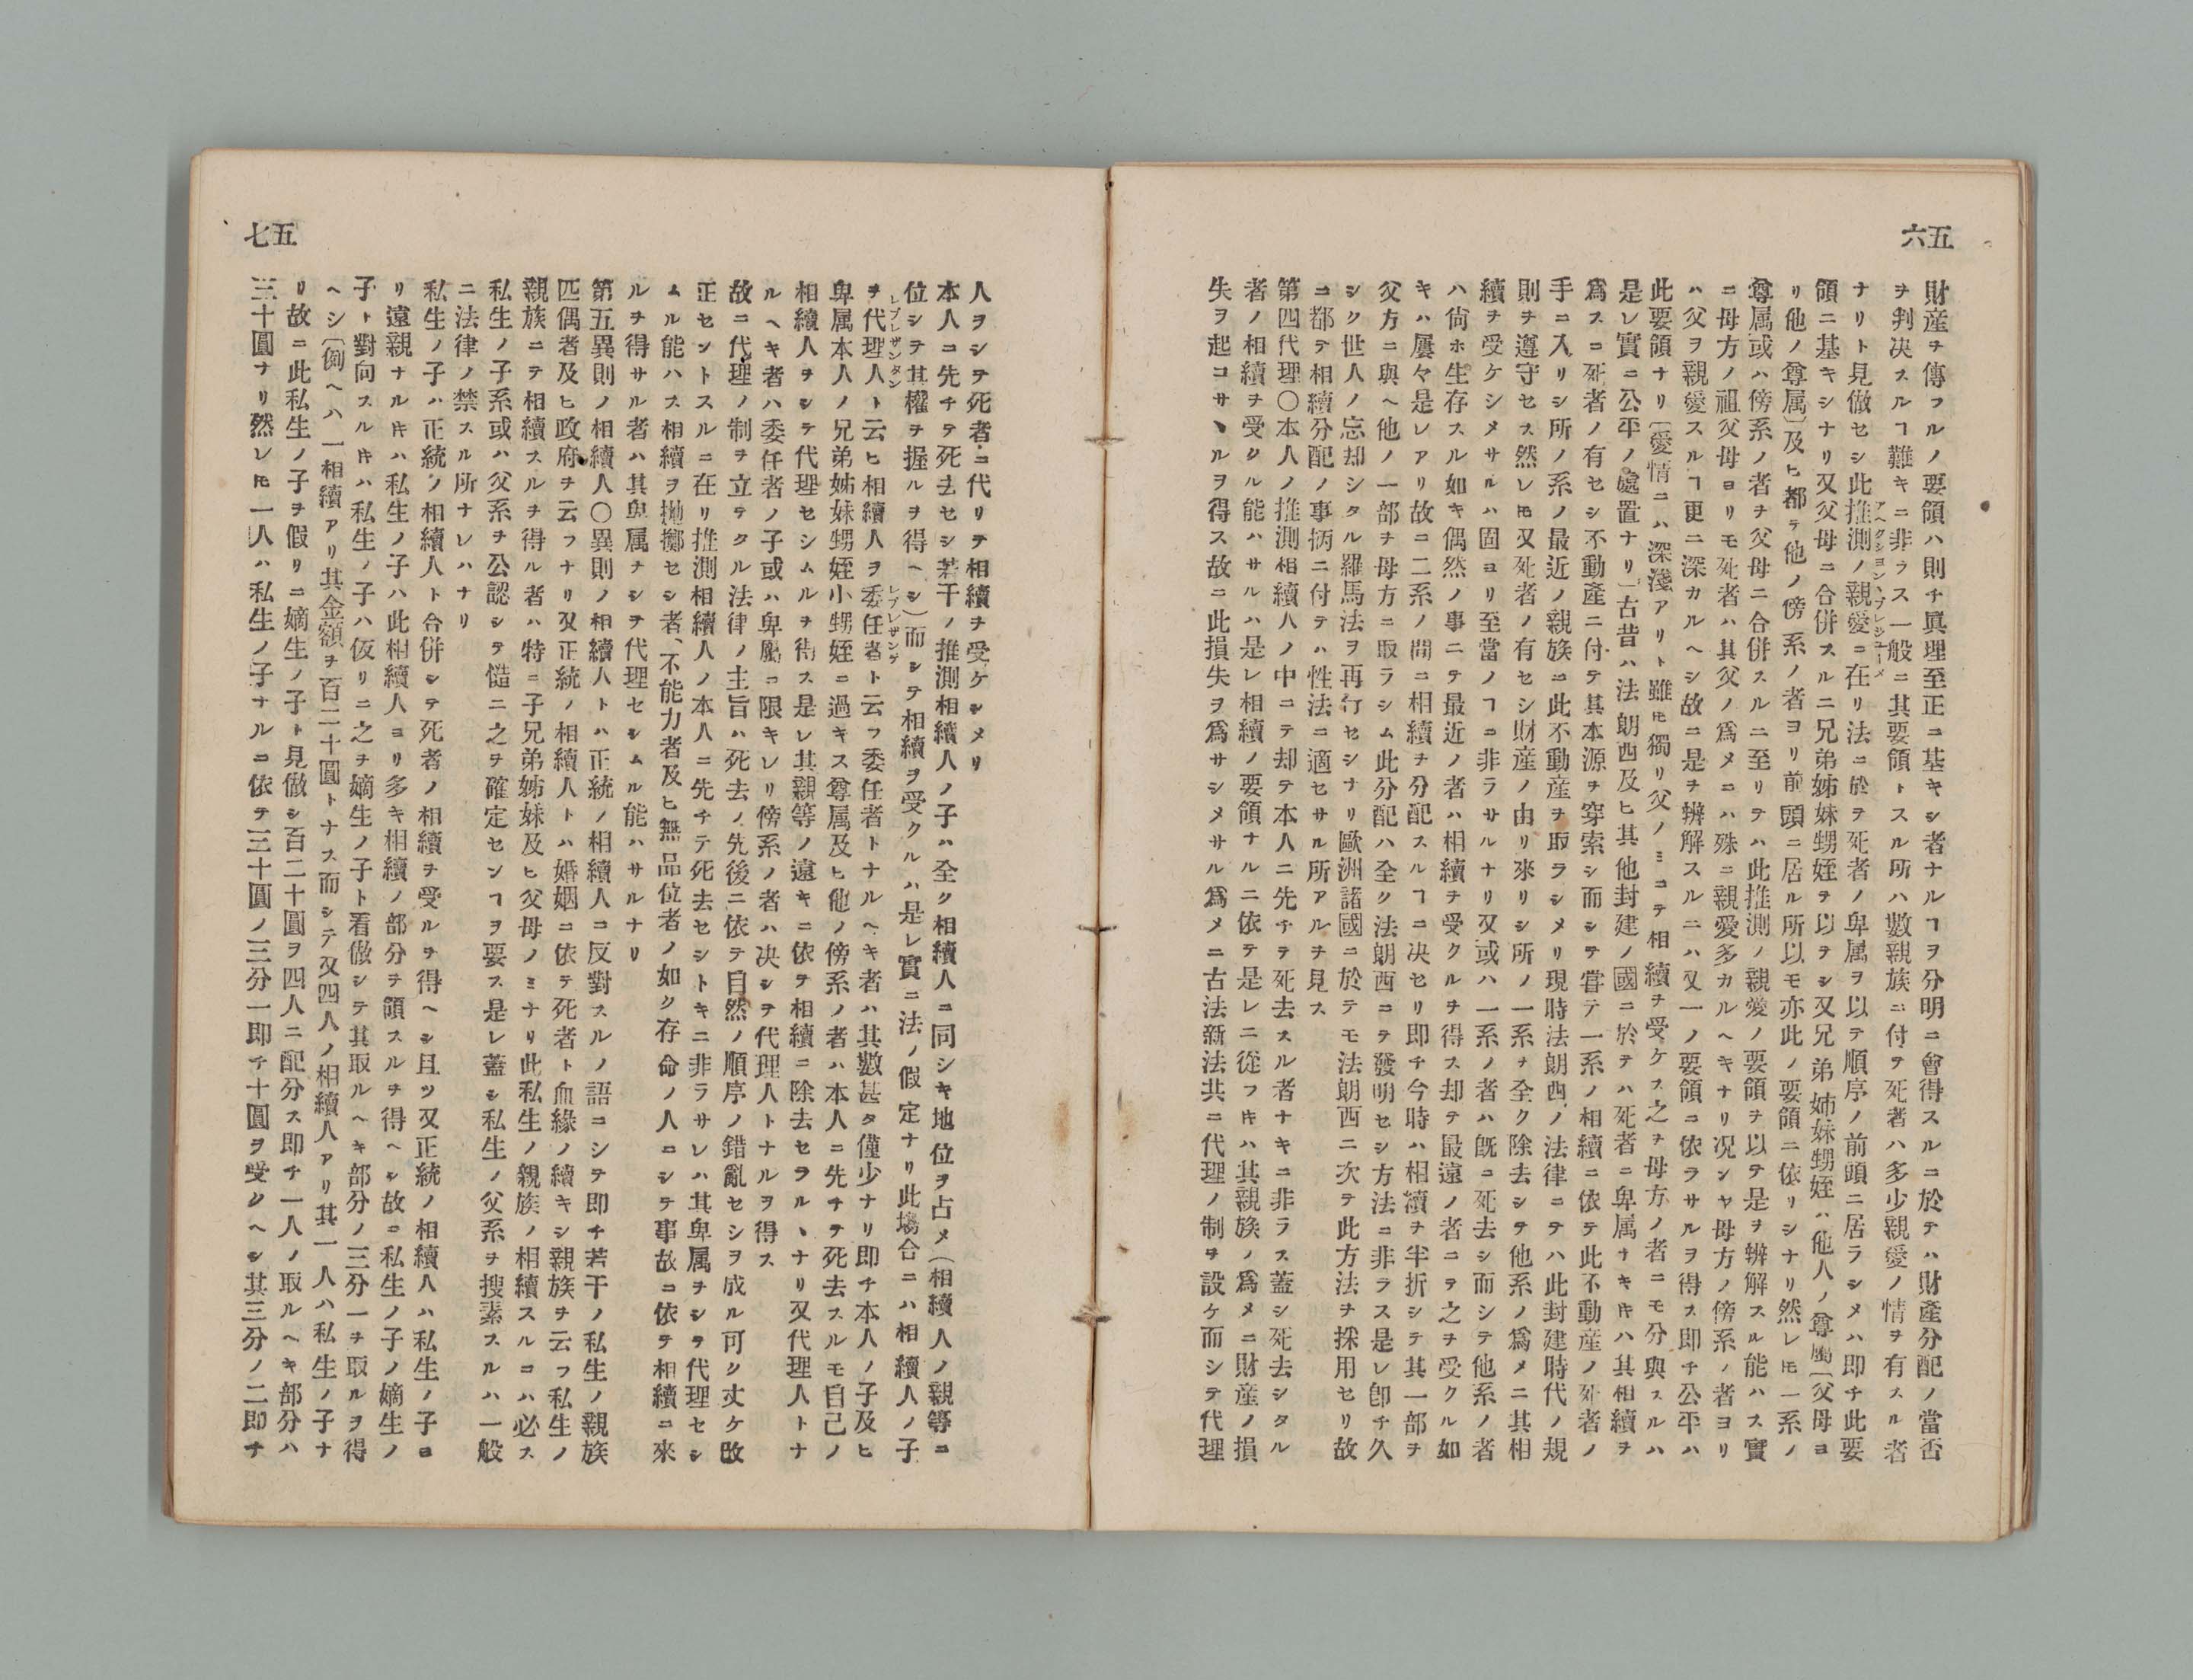 五六
財産チ傳フルノ要領ハ則チ眞理至正ニ基キシ者ナルヿヲ分明ニ會得スルニ於テハ財產分配ノ當否
ヲ判决スルヿ難キニ非ラス一般ニ其要領トスル所ハ數親族ニ付テ死者ハ多少親愛ノ情ヲ有スル者
ナリト見傚セシ此推測ノ親愛ニ在リ法ニ於テ死者ノ卑属ヲ以テ順序ノ前頭ニ居ラシメハ即チ此要
アヘクションプレジユーメ
領ニ基キシナリ又父母ニ合併スルニ兄弟姊妹甥姪ヲ以テシ又兄弟姊妹甥姪ハ他人ノ尊屬〔父母ヨ
リ他ノ尊属〕及ヒ都テ他ノ傍系ノ者ヨリ前頭ニ居ル所以モ亦此ノ要領ニ依リシナリ然レ𪜈一系ノ
尊属或ハ傍系ノ者チ父母ニ合併スルニ至リテハ此推測ノ親愛ノ要領チ以テ是ヲ辨解スル能ハス實
ニ母方ノ祖父母ヨリモ死者ハ其父ノ爲メニハ殊ニ親愛多カルヘキナリ况シヤ母方ノ傍系ノ者ヨリ
ハ父ヲ親愛スルヿ更ニ深カルヘシ故ニ是チ辨解スルニハ又一ノ要領ニ依ラサルヲ得ス即チ公平ハ
此要領ナリ〔愛情ニハ深淺アリト雖𪜈獨リ父ノミニテ相續チ受ケス之チ母方ノ者ニモ分與スルハ
是レ實ニ公平ノ處置ナリ〕古昔ハ法朗西及ヒ其他封建ノ國ニ於テハ死者ニ卑属ナキ𪜈ハ其相續ヲ
爲スニ死者ノ有セシ不動產ニ付テ其本源チ穿索シ而シテ甞テ一系ノ相續ニ依テ此不動產ノ死者ノ
手ニ入リシ所ノ系ノ最近ノ親族ニ此不動產ヲ取ラシメリ現時法朗西ノ法律ニテハ此封建時代ノ規
則チ遵守セス然レ𪜈又死者ノ有セシ財產ノ由リ來リシ所ノ一系チ全ク除去シテ他系ノ爲メニ其相
續チ受ケシメサルハ固ヨリ至當ノヿニ非ラサルナリ又或ハ一系ノ者ハ既ニ死去シ而シテ他系ノ者
ハ尙ホ生存スル如キ偶然ノ事ニテ最近ノ者ハ相續チ受クルチ得ス却テ最遠ノ者ニテ之チ受クル如
キハ屢々是レアリ故ニ二系ノ間ニ相續チ分配スルヿニ决セリ即チ今時ハ相續チ半折シテ其一部ヲ
父方ニ與ヘ他ノ一部チ母方ニ取ラシム此分配ハ全ク法朗西ニテ發明セシ方法ニ非ラス是レ卽チ久
シク世人ノ忘却シタル羅馬法ヲ再行セシナリ歐洲諸國ニ於テモ法朗西ニ次テ此方法チ採用セリ故
ニ都テ相續分配ノ事柄ニ付テハ性法ニ適セサル所アルチ見ス
第四代理〇本人ノ推測相續人ノ中ニテ却テ本人ニ先チテ死去スル者ナキニ非ラス蓋シ死去シタル
者ノ相續チ受クル能ハサルハ是レ相續ノ要領ナルニ依テ是レニ從フ𪜈ハ其親族ノ爲メニ財產ノ損
失ヲ起コサヽルヲ得ス故ニ此損失ヲ爲サシメサル爲メニ古法新法共ニ代理ノ制ヲ設ケ而シテ代理
五七
人ヲシテ死者ニ代リテ相續チ受ケシメリ
本人ニ先チテ死去セシ若干ノ推測相續人ノ子ハ全ク相續人ニ同シキ地位ヲ占メ（相續人ノ親等ニ
位シテ其權チ握ルヲ得ヘシ）而シテ相續ヲ受クルハ是レ實ニ法ノ假定ナリ此塲合ニハ相續人ノ子
ヲ代理人ト云ヒ相續人ヲ委任者ト云フ委任者トナルヘキ者ハ其數甚タ僅少ナリ即チ本人ノ子及ヒ
レプレザンタン
レプレザンゲ
卑属本人ノ兄弟姊妹甥姪小甥姪ニ過キス尊属及ヒ他ノ傍系ノ者ハ本人ニ先チテ死去スルモ自己ノ
相續人ヲシテ代理セシムルヲ得ス是レ其親等ノ遠キニ依テ相續ニ除去セラルヽナリ又代理人トナ
ルヘキ者ハ委任者ノ子或ハ卑屬ニ限キレリ傍系ノ者ハ决シテ代理人トナルヲ得ス
故ニ代理ノ制ヲ立テタル法律ノ主旨ハ死去ノ先後ニ依テ自然ノ順序ノ錯亂セシヲ成ル可ク丈ケ改
正セントスルニ在リ推測相續人ノ本人ニ先チテ死去セシトキニ非ラサレハ其卑属チシテ代理セシ
ムル能ハス相續ヲ抛擲セシ者、不能力者及ヒ無品位者ノ如ク存命ノ人ニシテ事故ニ依テ相續ニ來
ルチ得サル者ハ其卑属チシテ代理セシムル能ハサルナリ
第五異則ノ相續人〇異則ノ相續人トハ正統ノ相續人ニ反對スルノ語ニシテ即チ若干ノ私生ノ親族
匹偶者及ヒ政府チ云フナリ又正統ノ相續人トハ婚姻ニ依テ死者ト血緣ノ續キシ親族チ云フ私生ノ
親族ニテ相續スルチ得ル者ハ特ニ子兄弟姊妹及ヒ父母ノミナリ此私生ノ親族ノ相續スルニハ必ス
私生ノ子系或ハ父系チ公認シテ慥ニ之ヲ確定センヿヲ要ス是レ蓋シ私生ノ父系ヲ搜索スルハ一般
ニ法律ノ禁スル所ナレハナリ
私生ノ子ハ正統ノ相續人ト合併シテ死者ノ相續ヲ受ルチ得ヘシ且ツ又正統ノ相續人ハ私生ノ子ヨ
リ遠親ナル𪜈ハ私生ノ子ハ此相續人ヨリ多キ相續ノ部分チ領スルチ得ヘシ故ニ私生ノ子ノ嫡生ノ
子ト對向スル𪜈ハ私生ノ子ハ仮リニ之チ嫡生ノ子ト看傚シテ其取ルヘキ部分ノ三分一チ取ルヲ得
ヘシ〔例ヘハ一相續アリ其金額チ百二十圓トナス而シテ又四人ノ相續人アリ其一人ハ私生ノ子ナ
リ故ニ此私生ノ子ヲ假リニ嫡生ノ子ト見傚シ百二十圓ヲ四人ニ配分ス即チ一人ノ取ルヘキ部分ハ
三十圓ナリ然レ𪜈一人ハ私生ノ子ナルニ依テ三十圓ノ三分一即チ十圓ヲ受クヘシ其三分ノ二即チ